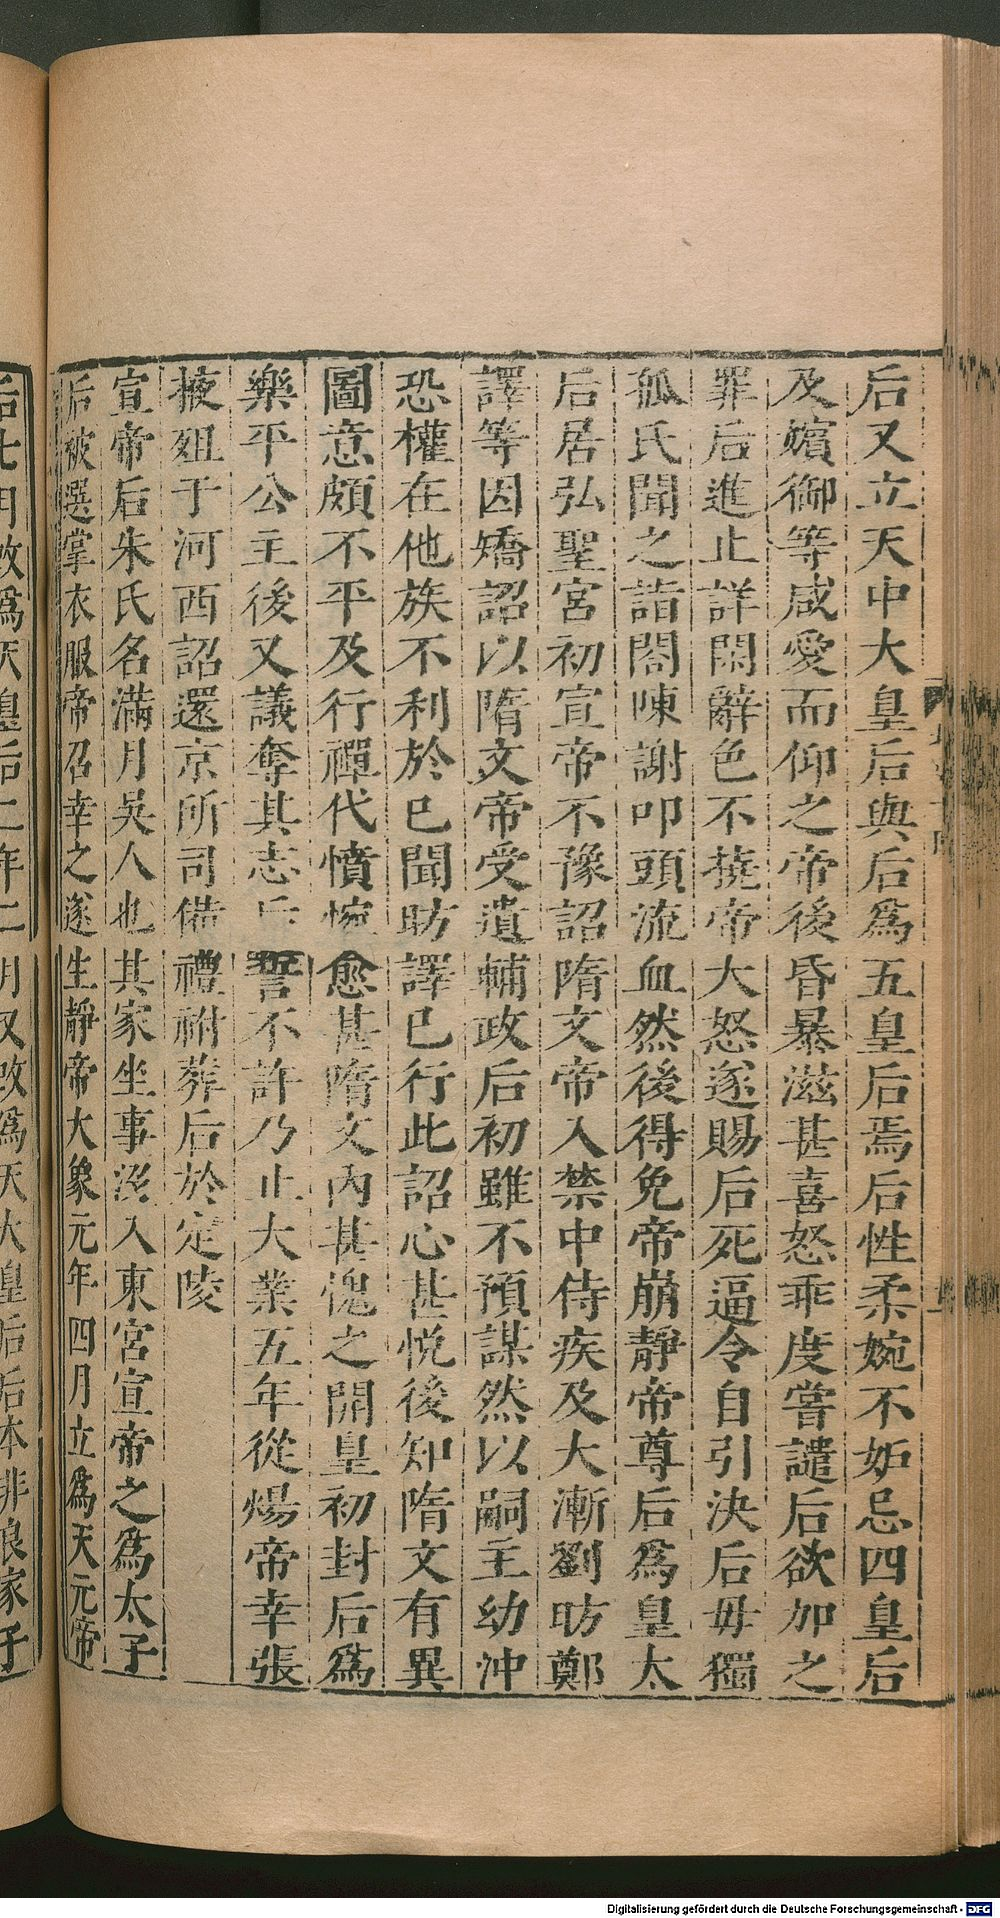 后又立天中大皇后與后為五皇后焉后性柔婉不妬忌四皇后
及嬪御等咸愛而仰之帝後昏暴滋甚喜怒乖度嘗譴后欲加之
罪后進止詳閑辭色不撓帝大怒遂賜后死逼令自引決后母獨
孤氏聞之詣閤陳謝叩頭流血然後得免帝崩靜帝尊后為皇太
后居弘聖宮初宣帝不豫詔隋文帝入禁中侍疾及大漸劉昉鄭
譯等因矯詔以隋文帝受遺輔政后初雖不預謀然以嗣主幼沖
恐權在他族不利於已聞昉譯已行此詔心甚悅後知隋文有異
圖意頗不平及行禪代憤惋愈甚隋文內甚愧之開皇初封后為
樂平公主後又議奪其志后誓不許乃止大業五年從煬帝幸張
掖殂于河西詔還京所司備禮祔葬后於定陵
宣帝后朱氏名滿月吳人也其家坐事沒入東宮宣帝之為太子
后被選掌衣服帝召幸之遂生靜帝大象元年四月立為天元帝
后七月改為天皇后二年二月又改為天大皇后后本非良家子
Digitalisierung gefördert durch die Deutsche Forschungsgemeinschaft - DFG